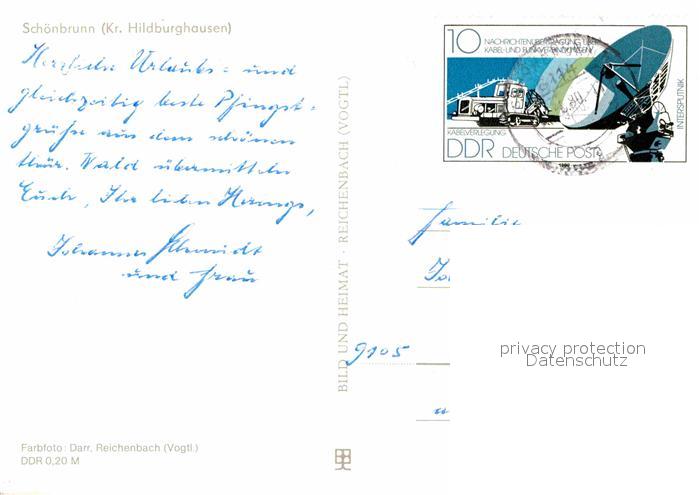 Schönbrunn (Kr. Hildburghausen)
Herzliche Urlaubs- und
gleichzeitig beste Pfingst-
grüße aus dem schönen
thür. Wald übermitteln
Euch, Ihr lieben
Johannes Schmidt
und Frau
Farbfoto: Darr, Reichenbach (Vogtl.)
DDR 0,20 M
BILD UND HEIMAT · REICHENBACH (VOGTL)
10 NACHRICHTENÜBERTRAGUNG ÜBER
KABEL- UND FUNKVERBINDUNGEN
KABELVERLEGUNG
DDR DEUTSCHE POST
1980
INTERSPUTNIK
Familie
9105
privacy protection
Datenschutz